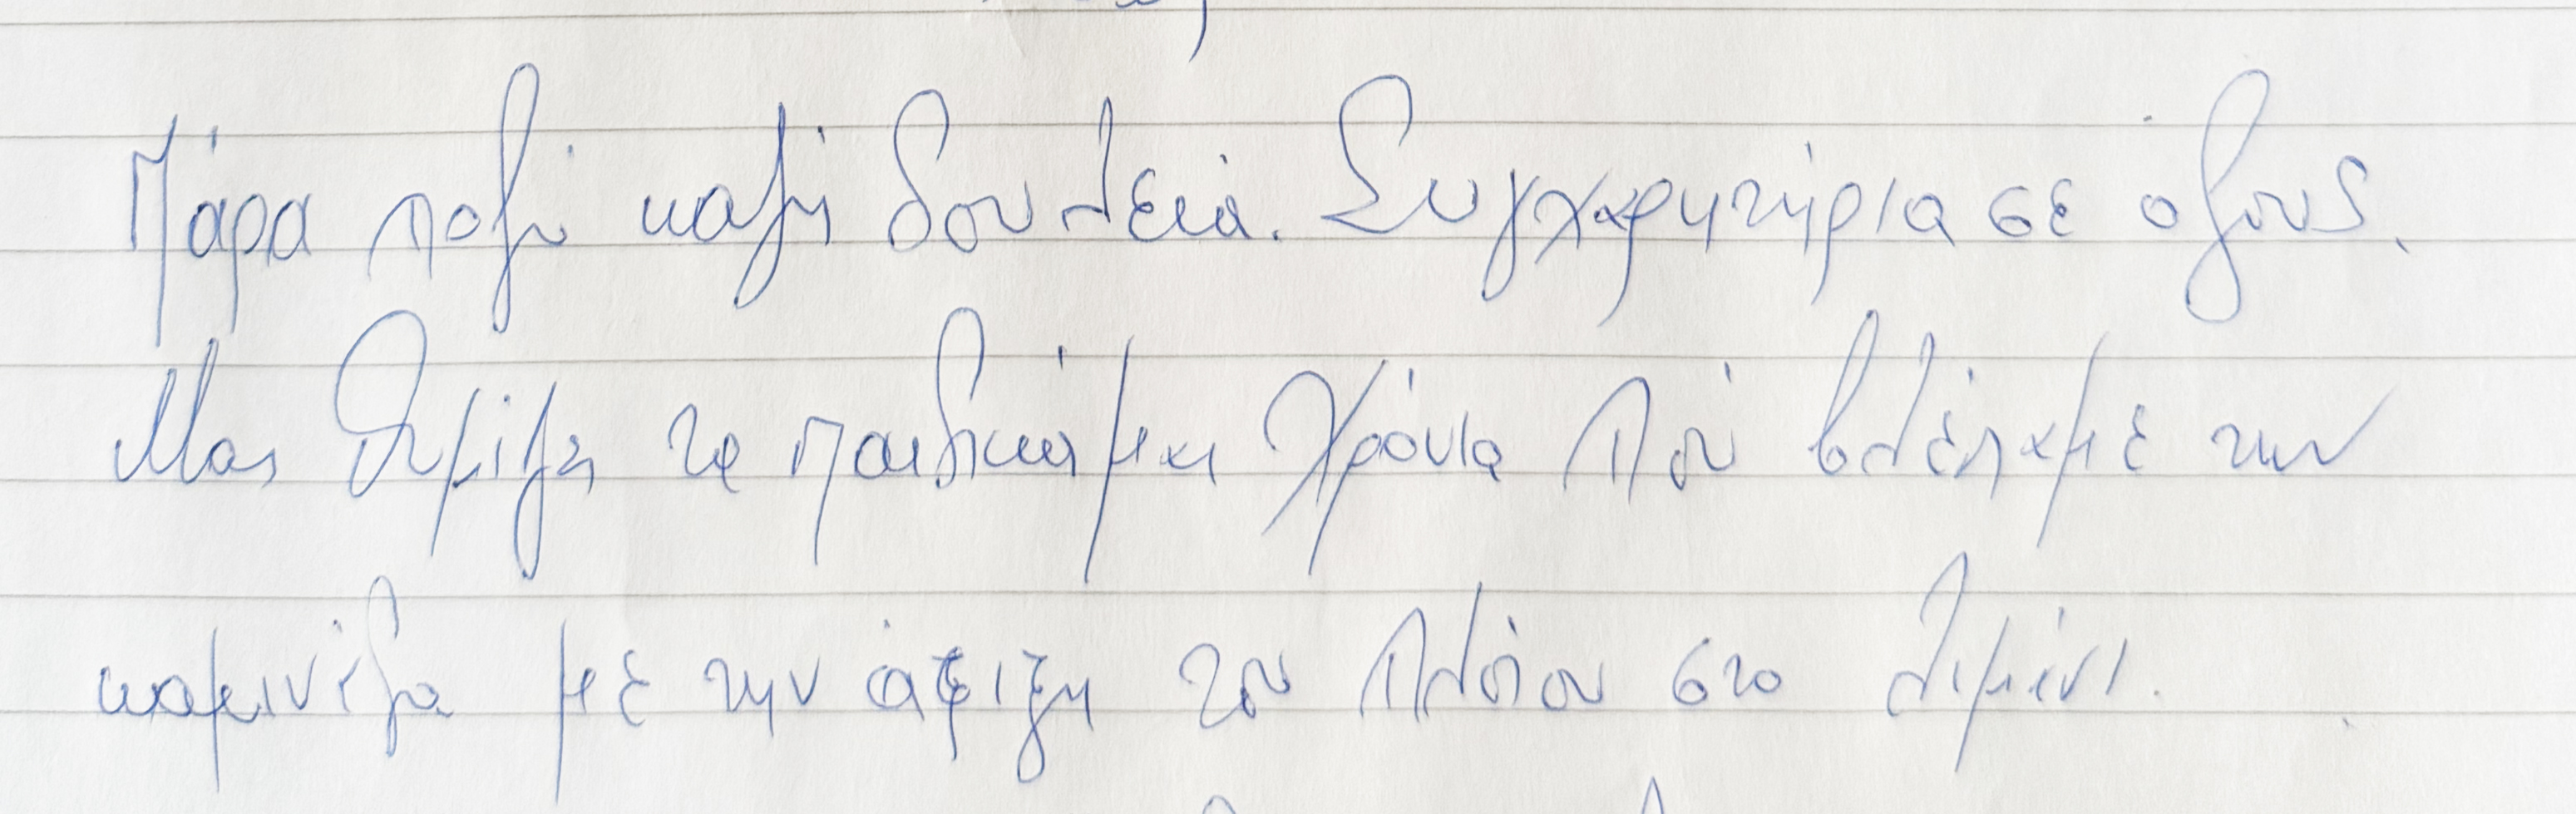 Πάρα πολύ καλή δουλειά. Συγχαρητήρια σέ όλους.
Μας θυμίζει τα παιδικά μας χρόνια πού βλέπαμε την
καμινάδα μέ την άφιξη του πλοίου στο λιμάνι.